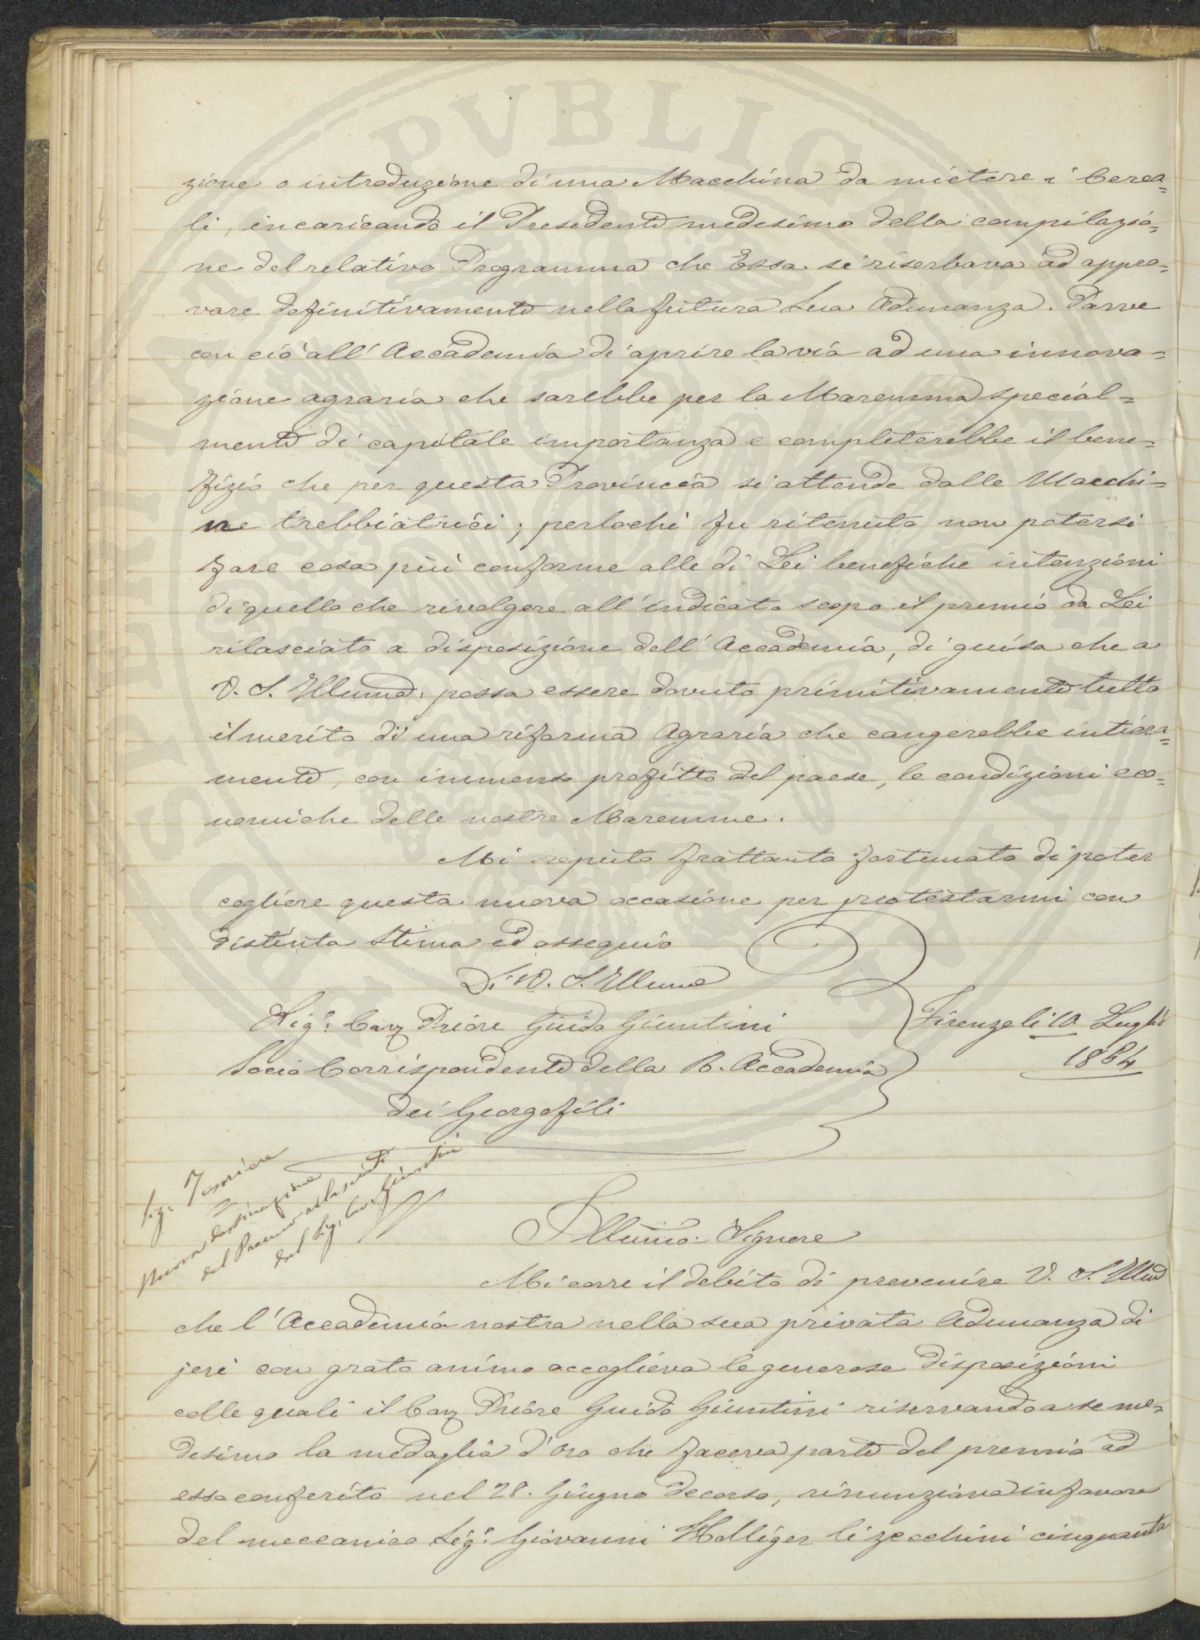 zione o introduzione di una Macchina da mietere i Cerea=
li, incaricando il Presidente medesimo della compilazio=
ne del relativo Programma che Essa si riserbava ad appro=
vare definitivamente nella futura Sua Adunanza. Parve
con ciò all'Accademia di aprire la via ad una innova=
zione agraria che sarebbe per la Maremma special=
mente di capitale importanza e completerebbe il bene=
fizio che per questa Provincia si attende dalle Macchi=
ne trebbiatrici; perlochè fu ritenuto non potersi
fare cosa più conforme alle di Lei benefiche intenzioni
di quello che rivolgere all'indicato scopo il premio da Lei
rilasciato a disposizione dell'Accademia, di guisa che a
V. S. Illuma: possa essere dovuto primitivamente tutto
il merito di una riforma Agraria che cangerebbe intiera=
mente, con immenso profitto del paese, le condizioni eco=
nomiche delle nostre Maremme.
Mi reputo frattanto fortunato di poter
cogliere questa nuova occasione per protestarmi con
distinta stima ed ossequio
Di V. S. Illuma
Sigr: Cav Priore Guido Giuntini
Socio Corrispondente della R. Accademia
dei Georgofili
Firenze li 10 Luglio
1864
Sigr Tesoriere
Nuova destinazione
del Premio rilasciato
dal Sig. Cav. Giuntini
Illumo: Signore
Mi corre il debito di prevenire V. S. Illma
che l'Accademia nostra nella sua privata Adunanza di
jeri con grato animo accoglieva le generose disposizioni
colle quali il Cav Priore Guido Giuntini riservando a se me=
desimo la medaglia d'oro che faceva parte del premio ad
esso conferito nel 28. Giugno decorso, rinunziava in favore
del meccanico Sigr: Giovanni Holliger li zecchini cinquanta
PVBLIC